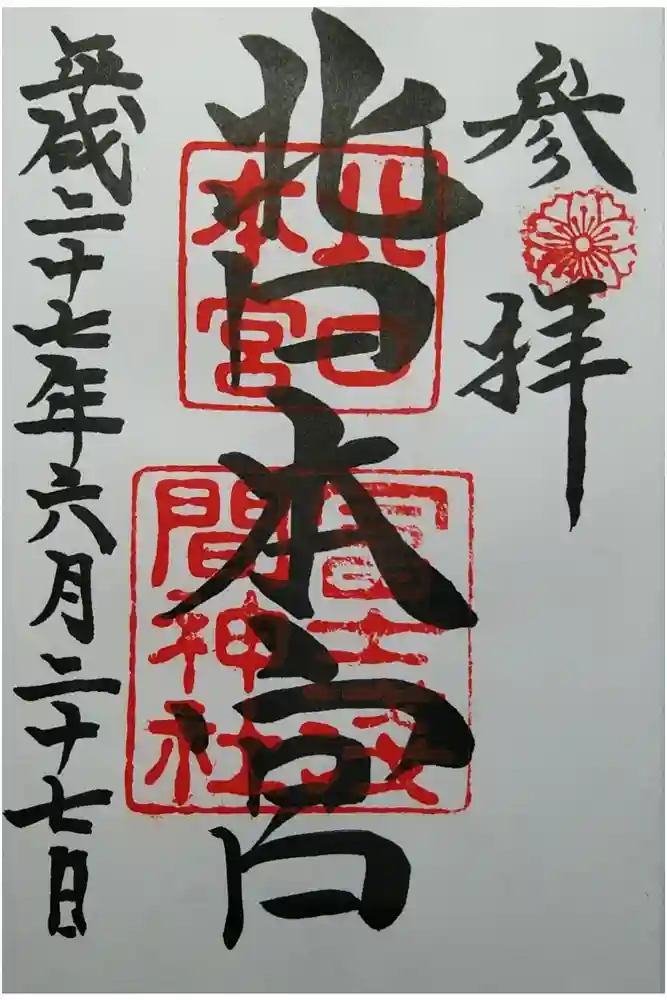 参拝
北口本宮
北口
本宮
冨士浅
間神社
平成二十七年六月二十七日